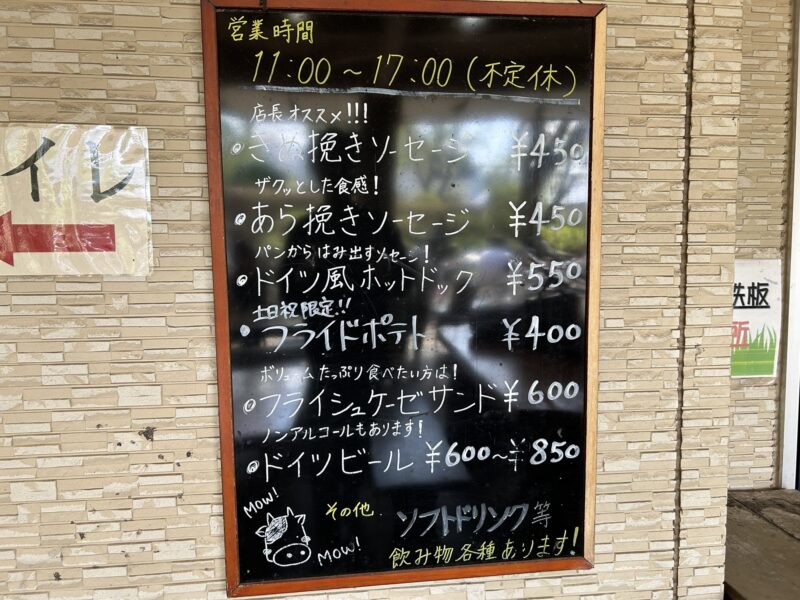 営業時間
11:00～17:00(不定休)
店長オススメ!!!
きぬ挽きソーセージ ¥450
ザクッとした食感!
あら挽きソーセージ ¥450
パンからはみ出すソーセージ!
ドイツ風ホットドック ¥550
土日祝限定!!
フライドポテト ¥400
ボリュームたっぷり食べたい方は!
フライシュケーゼサンド ¥600
ノンアルコールもあります!
ドイツビール ¥600～¥850
MOW!
MOW!
その他 ソフトドリンク等
飲み物各種あります!
イレ
鉄板
所